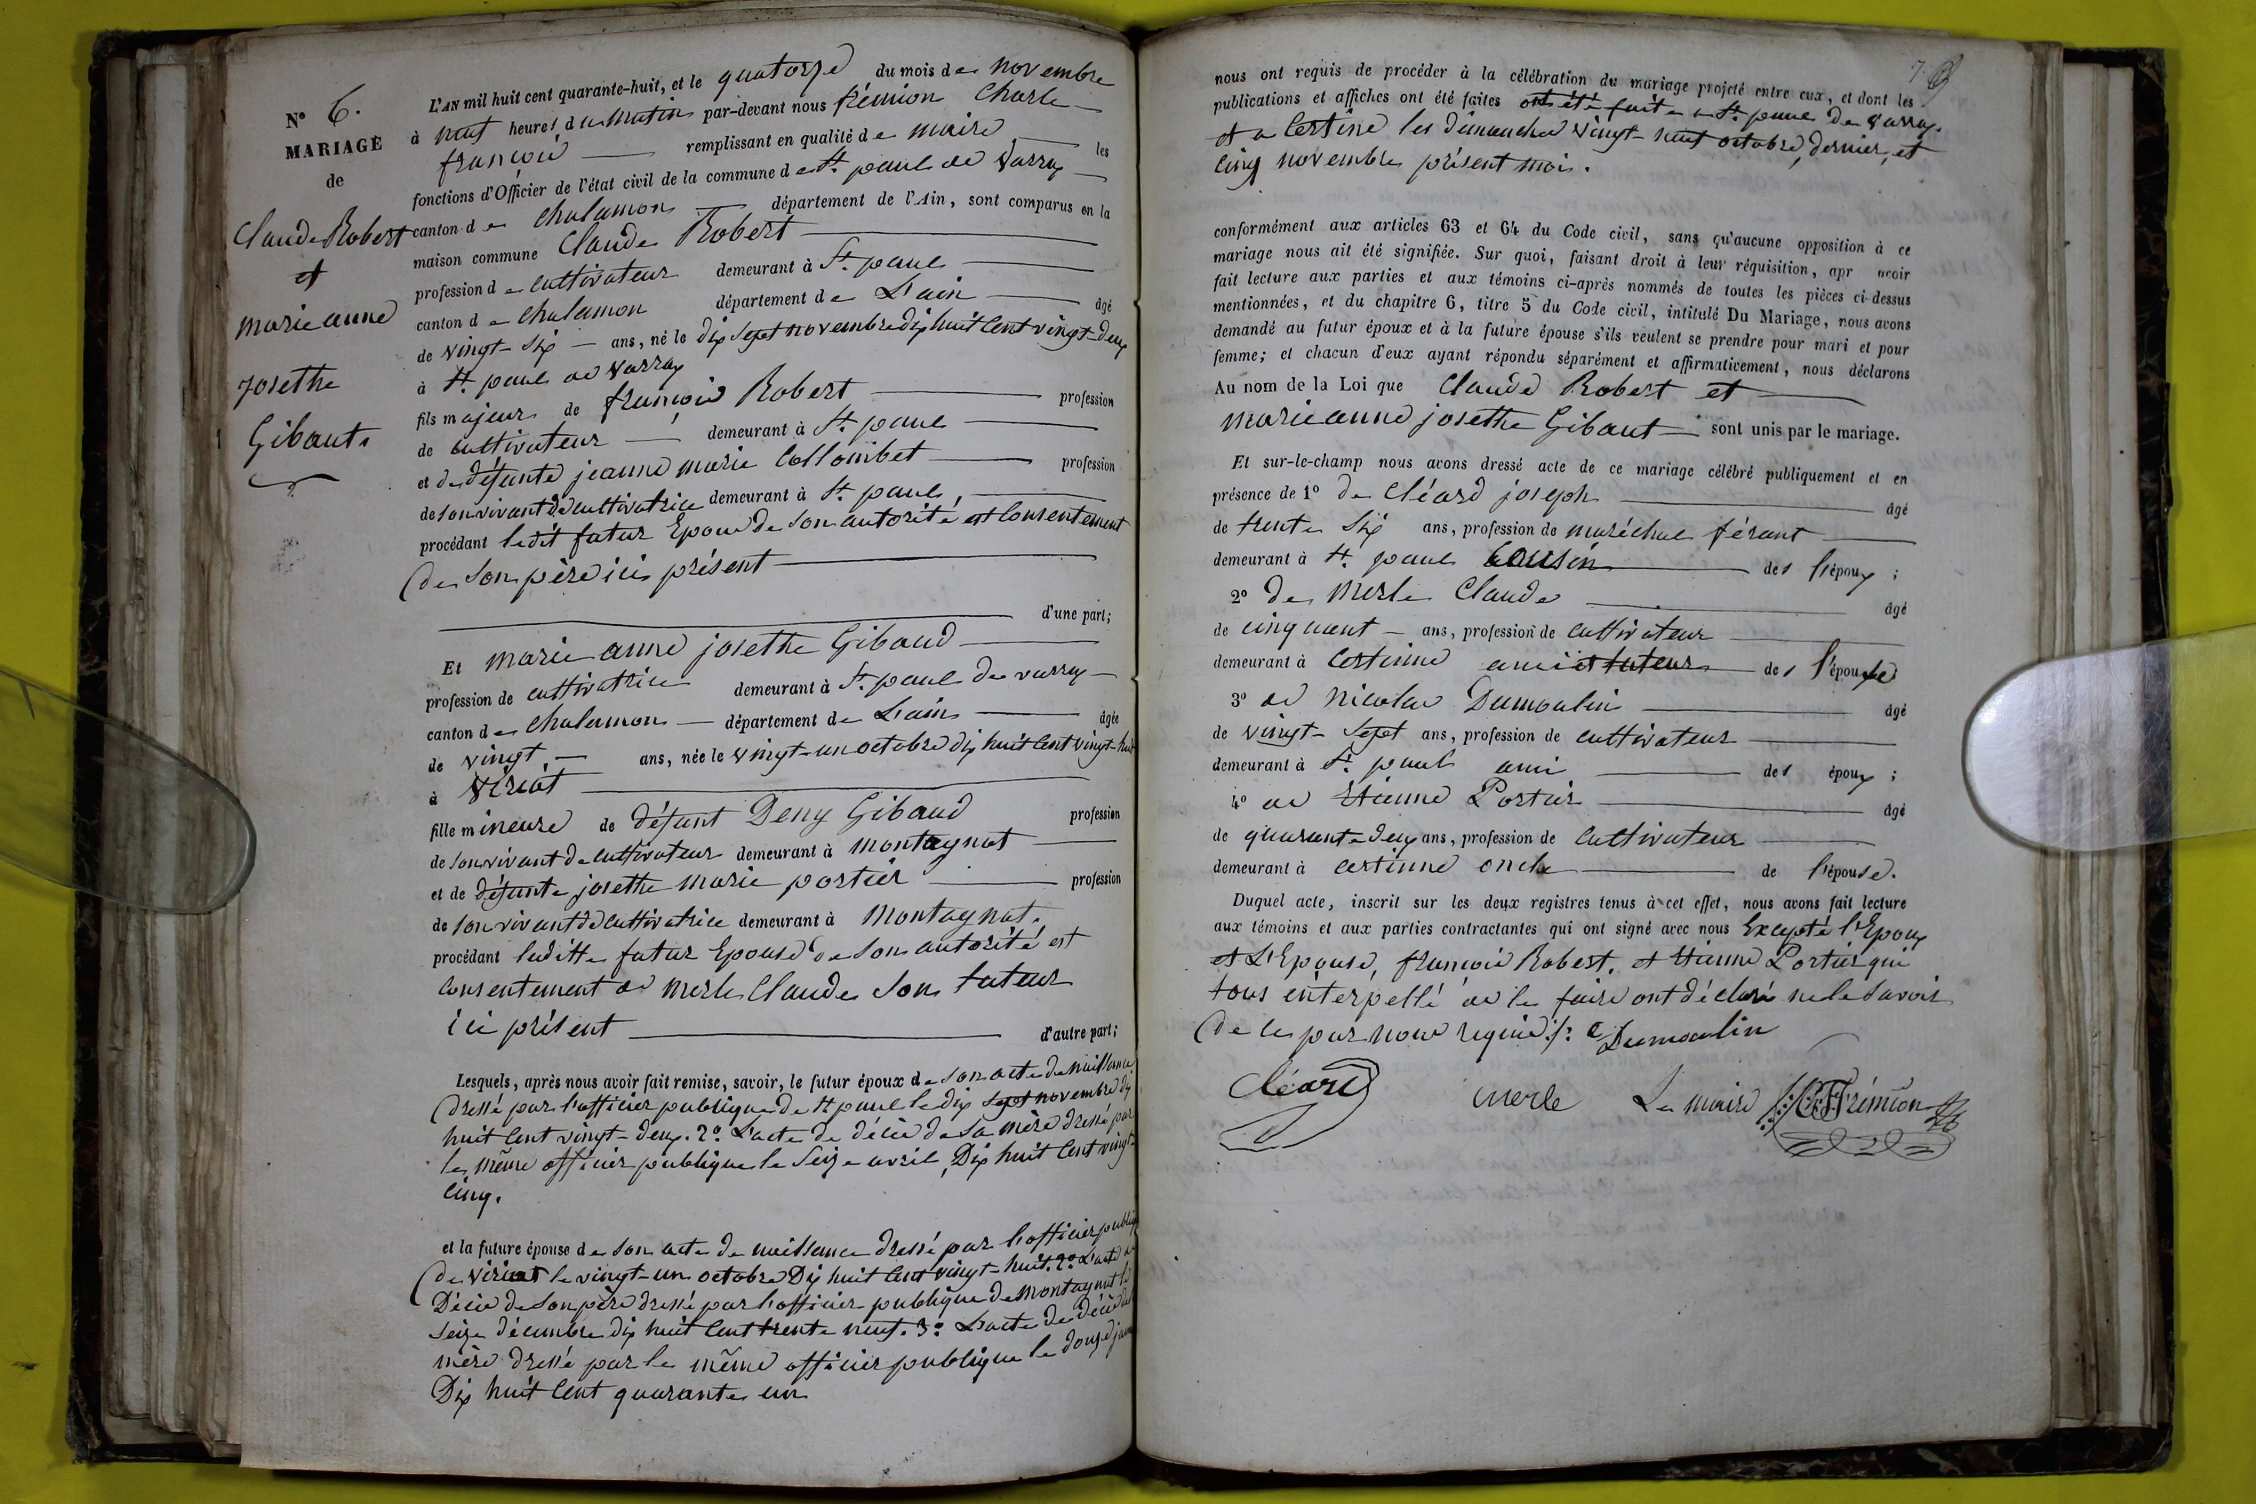 N° 6.
MARIAGE
de
Claude Robert
et
marie anne
josethe
Gibaut
L'AN mil huit cent quarante-huit, et le quatorze du mois de novembre
à neuf heures du matin par-devant nous frémion Charle
françois remplissant en qualité de maire les
fonctions d'Officier de l'état civil de la commune de St paul de varax
canton de chalamon département de l'Ain, sont comparus en la
maison commune Claude Robert
profession de cultivateur demeurant à St paul
canton de chalamon département de L'ain âgé
de vingt-six ans, né le dix sept novembre dix huit cent vingt-deux
à St paul de varax
fils majeur de françois Robert profession
de cultivateur demeurant à St paul
et de défunte jeanne marie Collombet profession
de son vivant de cultivatrice demeurant à St paul,
procédant ledit futur Epoux de son autorité et consentement
de son père ici présent
d'une part;
Et marie anne josethe Gibaud
profession de cultivatrice demeurant à St paul de varax
canton de chalamon département de L'ain âgée
de vingt ans, née le vingt-un octobre dix huit cent vingt-huit
à viriat
fille mineure de défunt Deny Gibaud profession
de son vivant de cultivateur demeurant à montagnat
et de défunte josethe marie portier profession
de son vivant de cultivatrice demeurant à Montagnat.
procédant laditte futur Epouse de son autorité et
consentement de merle Claude son tuteur
ici présent d'autre part;
Lesquels, après nous avoir fait remise, savoir, le futur époux de son acte de naissance
dressé par l'officier publique de St paul le dix sept novembre dix
huit cent vingt-deux. 2° L'acte de décès de sa mère dressé par
le même officier publique le seize avril, Dix huit cent vingt-
cinq.
et la future épouse de son acte de naissance dressé par l'officier publiq
de viriat le vingt-un octobre Dix huit cent vingt-huit. 2° L'acte de
Décès de son père dressé par l'officier publique de montagnat le
seize décembre dix huit cent trente neuf. 3° L'acte de décès de
mère dressé par le même officier publique le douze janv
Dix huit cent quarante un
7
nous ont requis de procéder à la célébration du mariage projeté entre eux, et dont les
publications et affiches ont été faites ont été fait à St paul de varax.
et a Certine les dimanches vingt-neuf octobre, dernier, et
cinq novembre présent mois.
conformément aux articles 63 et 64 du Code civil, sans qu'aucune opposition à ce
mariage nous ait été signifiée. Sur quoi, faisant droit à leur réquisition, apr avoir
fait lecture aux parties et aux témoins ci-après nommés de toutes les pièces ci-dessus
mentionnées, et du chapitre 6, titre 5 du Code civil, intitulé Du Mariage, nous avons
demandé au futur époux et à la future épouse s'ils veulent se prendre pour mari et pour
femme; et chacun d'eux ayant répondu séparément et affirmativement, nous déclarons
Au nom de la Loi que Claude Robert et
marie anne josethe Gibaut sont unis par le mariage.
Et sur-le-champ nous avons dressé acte de ce mariage célébré publiquement et en
présence de 1° de Cléard joseph âgé
de trente six ans, profession de maréchal férant
demeurant à St paul cousin des l'époux;
2° de Merle Claude âgé
de cinquant ans, profession de cultivateur
demeurant à certinne ami et tuteur des l'épouse
3° de Nicolas Dumoulin âgé
de vingt-sept ans, profession de cultivateur
demeurant à St paul ami des époux;
4° de Etienne Portier âgé
de quarante-deux ans, profession de cultivateur
demeurant à certinne oncle de l'épouse.
Duquel acte, inscrit sur les deux registres tenus à cet effet, nous avons fait lecture
aux témoins et aux parties contractantes qui ont signé avec nous Excepté l'Epoux
et L'Epouse, françois Robert, et Etienne Portier qui
tous interpellé de le faire ont déclaré ne le savoir
de ce par nous requis. Dumoulin
Cléard merle Le maire C F Frémion